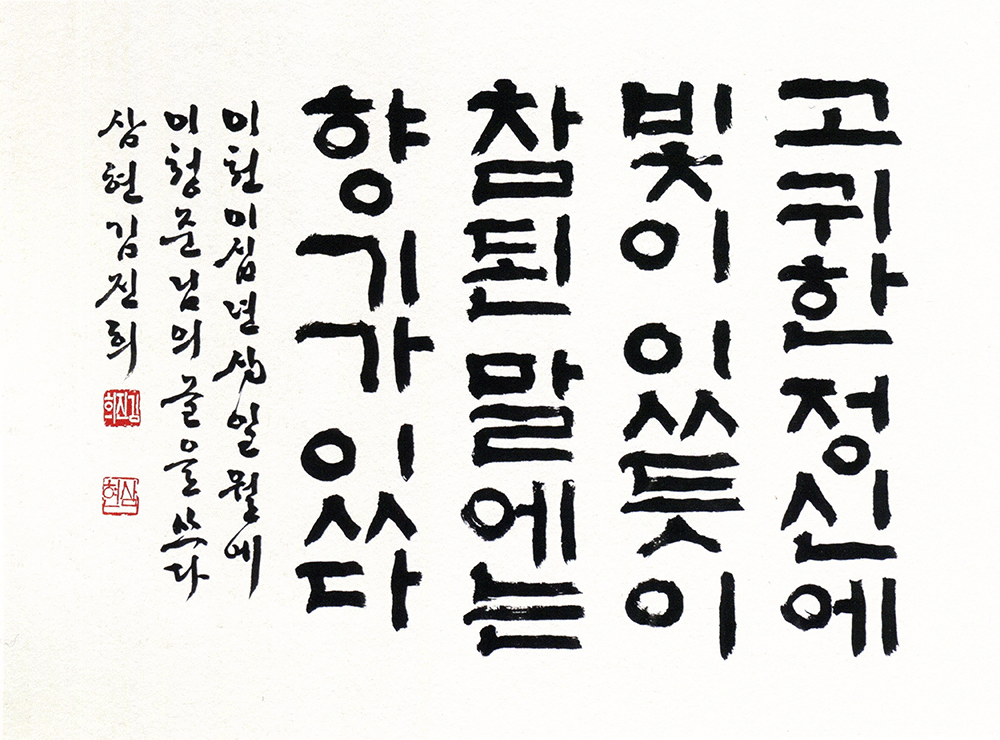 고귀한 정신에
빛이 있듯이
참된 말에는
향기가 있다
이천이십년 십일월에
이청준님의 글을 쓰다
삼현 김진희
김진희
삼현